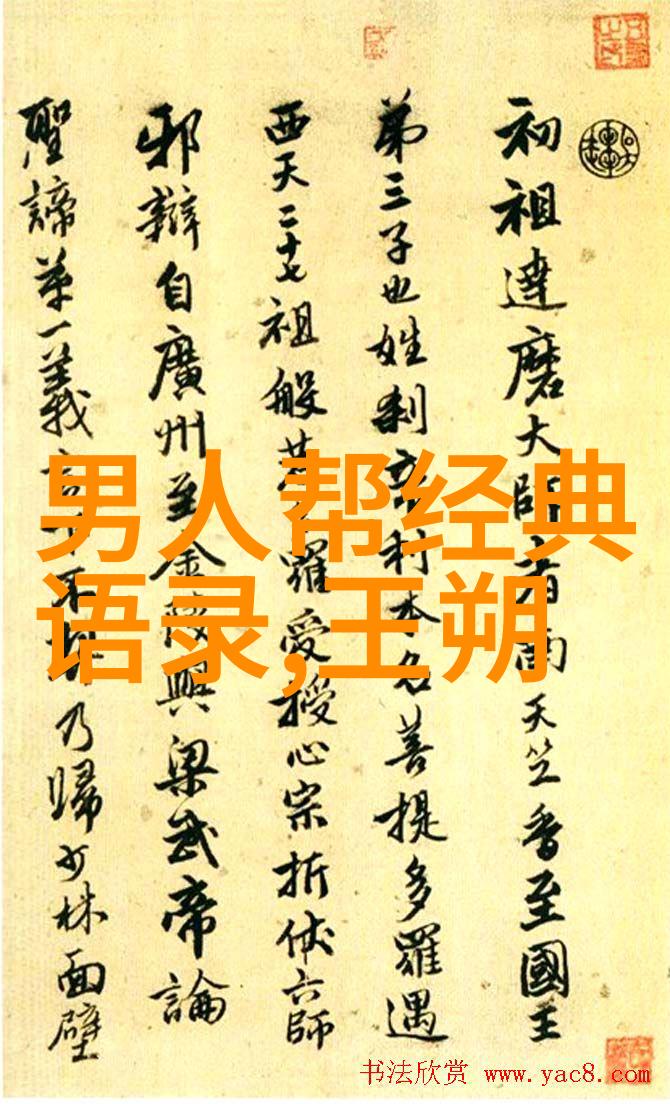 初祖達磨大師者南天竺香至國王
第三子也姓刹帝利本名菩提多羅遇
西天二十七祖般若多羅受授心宗折伏六師
邪辯自廣州至金陵與梁武帝論
聖諦第一義言下不契乃歸少林面壁
男人帮经典
语录,王朔
书法欣赏 www.yac8.com